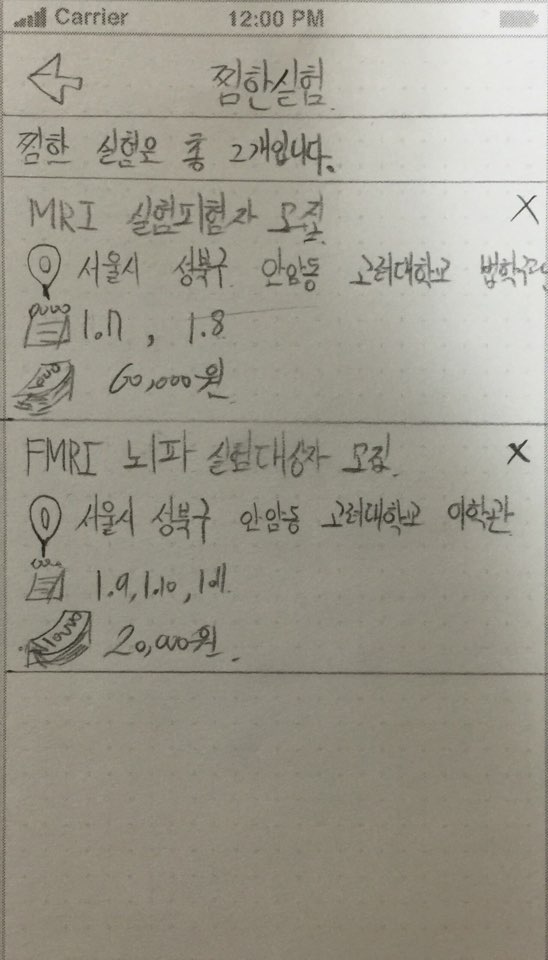 Carrier 12:00 PM
찜한실험
찜한 실험은 총 2개입니다.
MRI 실험피험자 모집
서울시 성북구 안암동 고려대학교
1.7, 1.8
60,000원
FMRI 뇌파 실험대상자 모집
서울시 성북구 안암동 고려대학교 이학관
1.9, 1.10,
20,000원